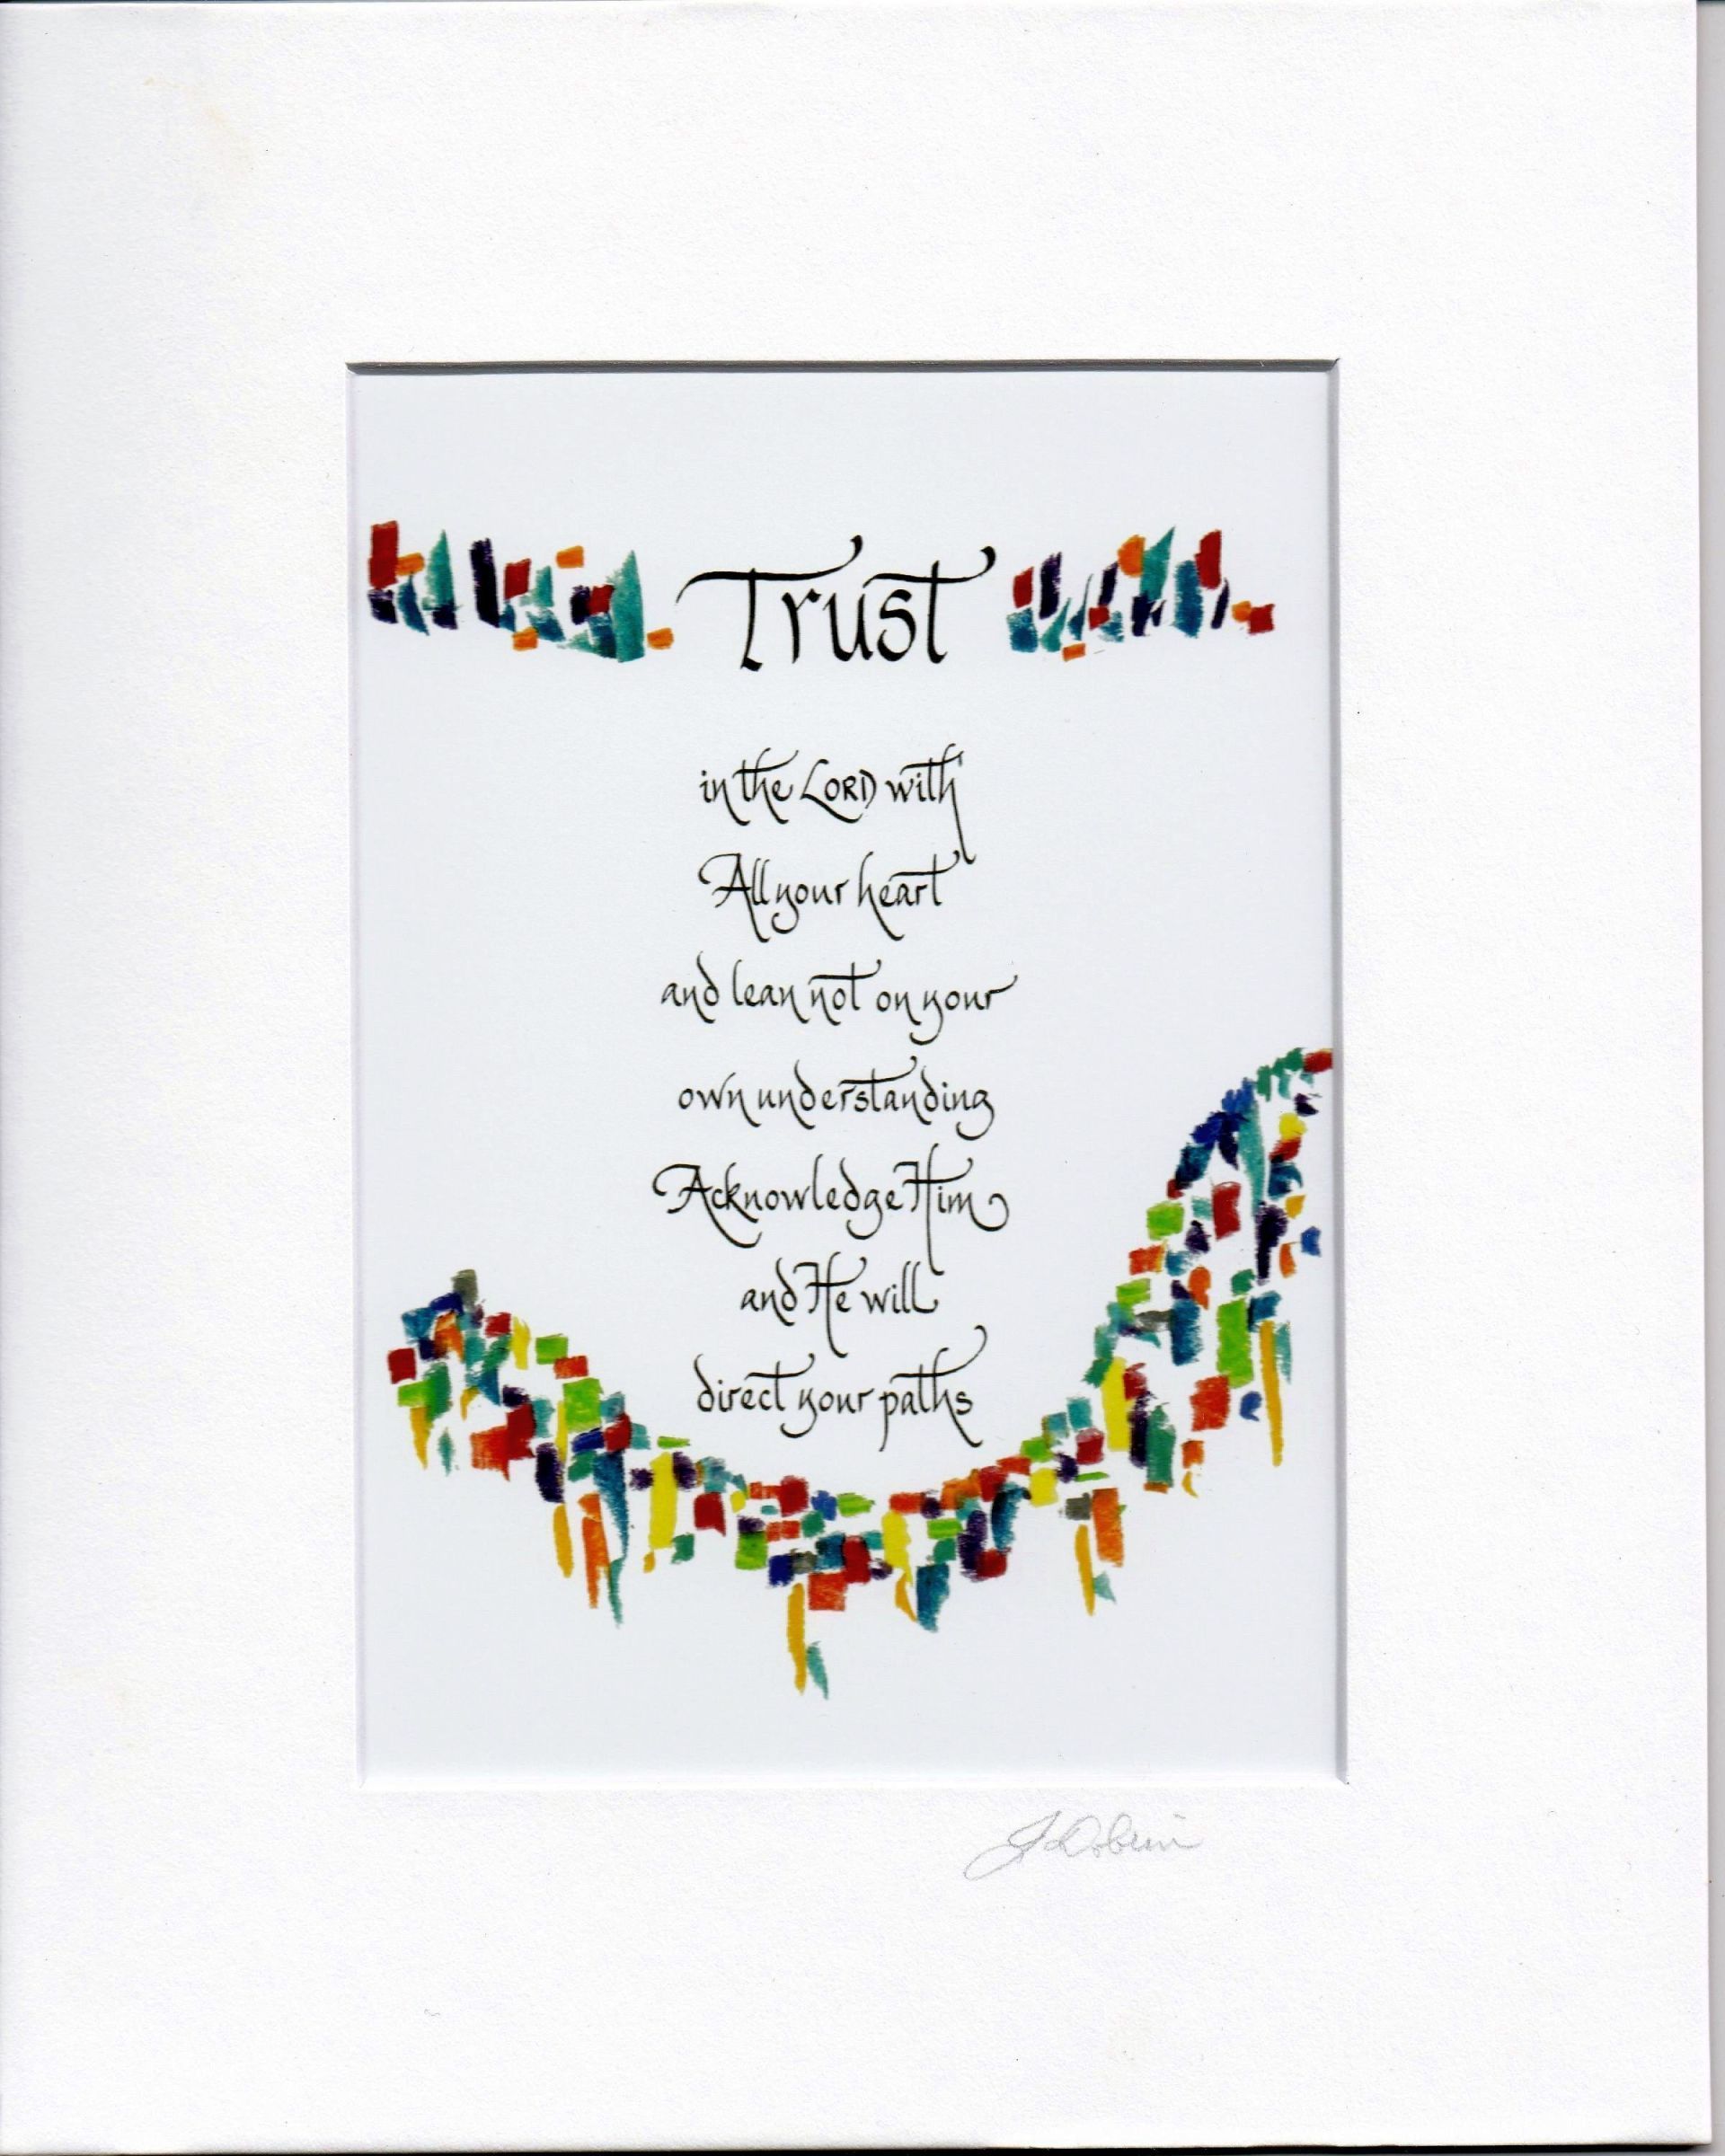 Trust
in the LORD with
All your heart
and lean not on your
own understanding
Acknowledge Him
and He will
direct your paths